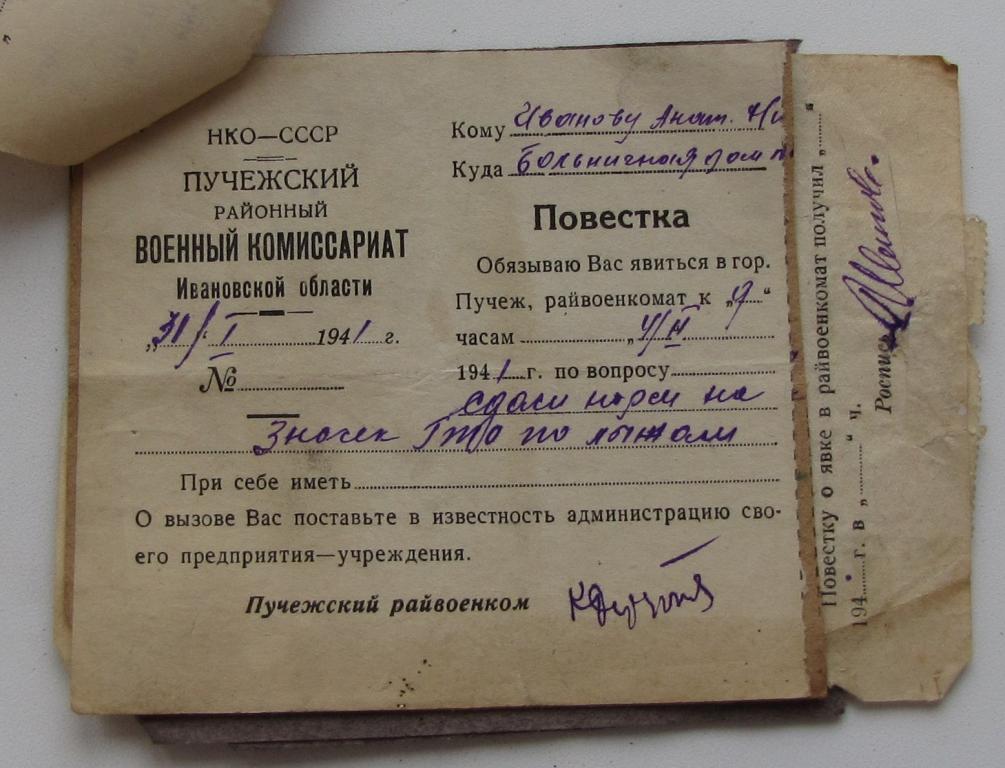 НКО—СССР
ПУЧЕЖСКИЙ
РАЙОННЫЙ
ВОЕННЫЙ КОМИССАРИАТ
Ивановской области
„31/ I 1941 г.
№
Кому Иванову Анат.
Куда Больничная дом
Повестка
Обязываю Вас явиться в гор.
Пучеж, райвоенкомат к „9“
часам „4/II
1941 г. по вопросу
сдачи норм на
Значек ГТО по лыжам
При себе иметь
О вызове Вас поставьте в известность администрацию сво-
его предприятия—учреждения.
Пучежский райвоенком
Повестку о явке в райвоенкомат получил „ “
194 г. в „ “ ч.
Роспись